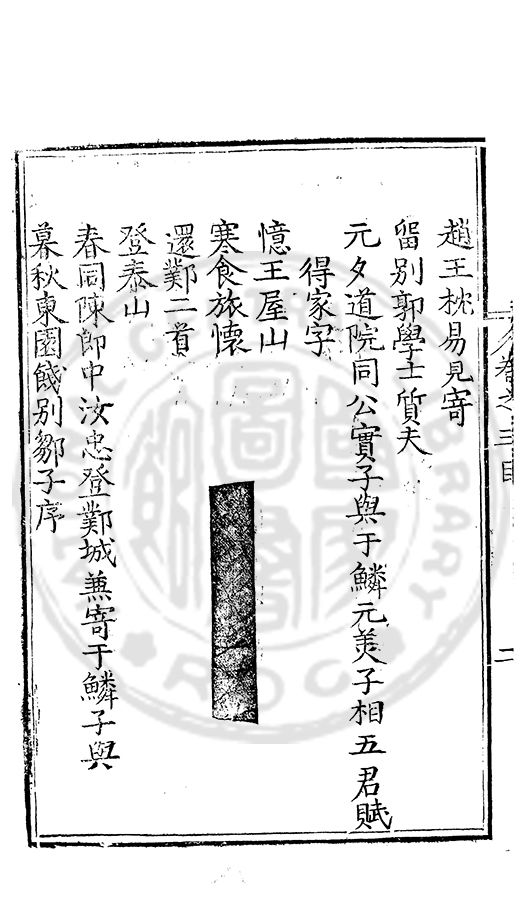 趙王枕易見寄
留别郭學士質夫
元夕道院同公實子與于鱗元美子相五君賦
得家字
憶王屋山
寒食旅懷
還鄴二首
登泰山
春同陳郎中汝忠登鄴城兼寄于鱗子與
暮秋東園餞别鄒子序